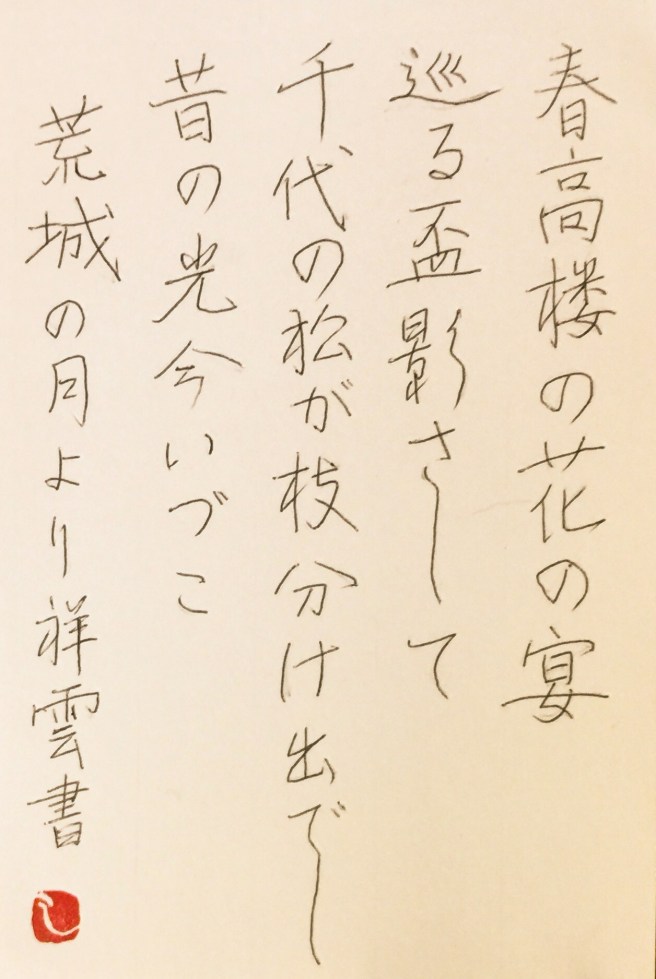 春高楼の花の宴
巡る盃影さして
千代の松が枝分け出でし
昔の光今いづこ
荒城の月より祥雲書